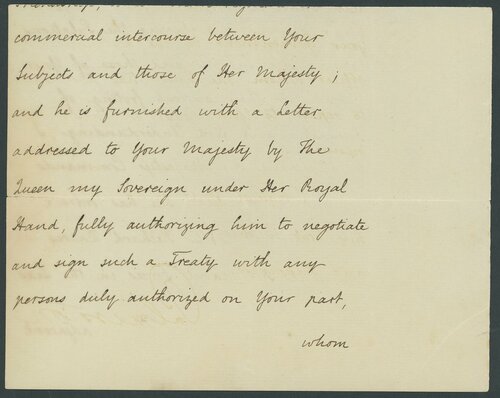 commercial intercourse between Your
Subjects and those of Her Majesty;
and he is furnished with a Letter
addressed to Your Majesty by The
Queen my Sovereign under Her Royal
Hand, fully authorizing him to negotiate
and sign such a Treaty with any
persons duly authorized on Your part,
whom